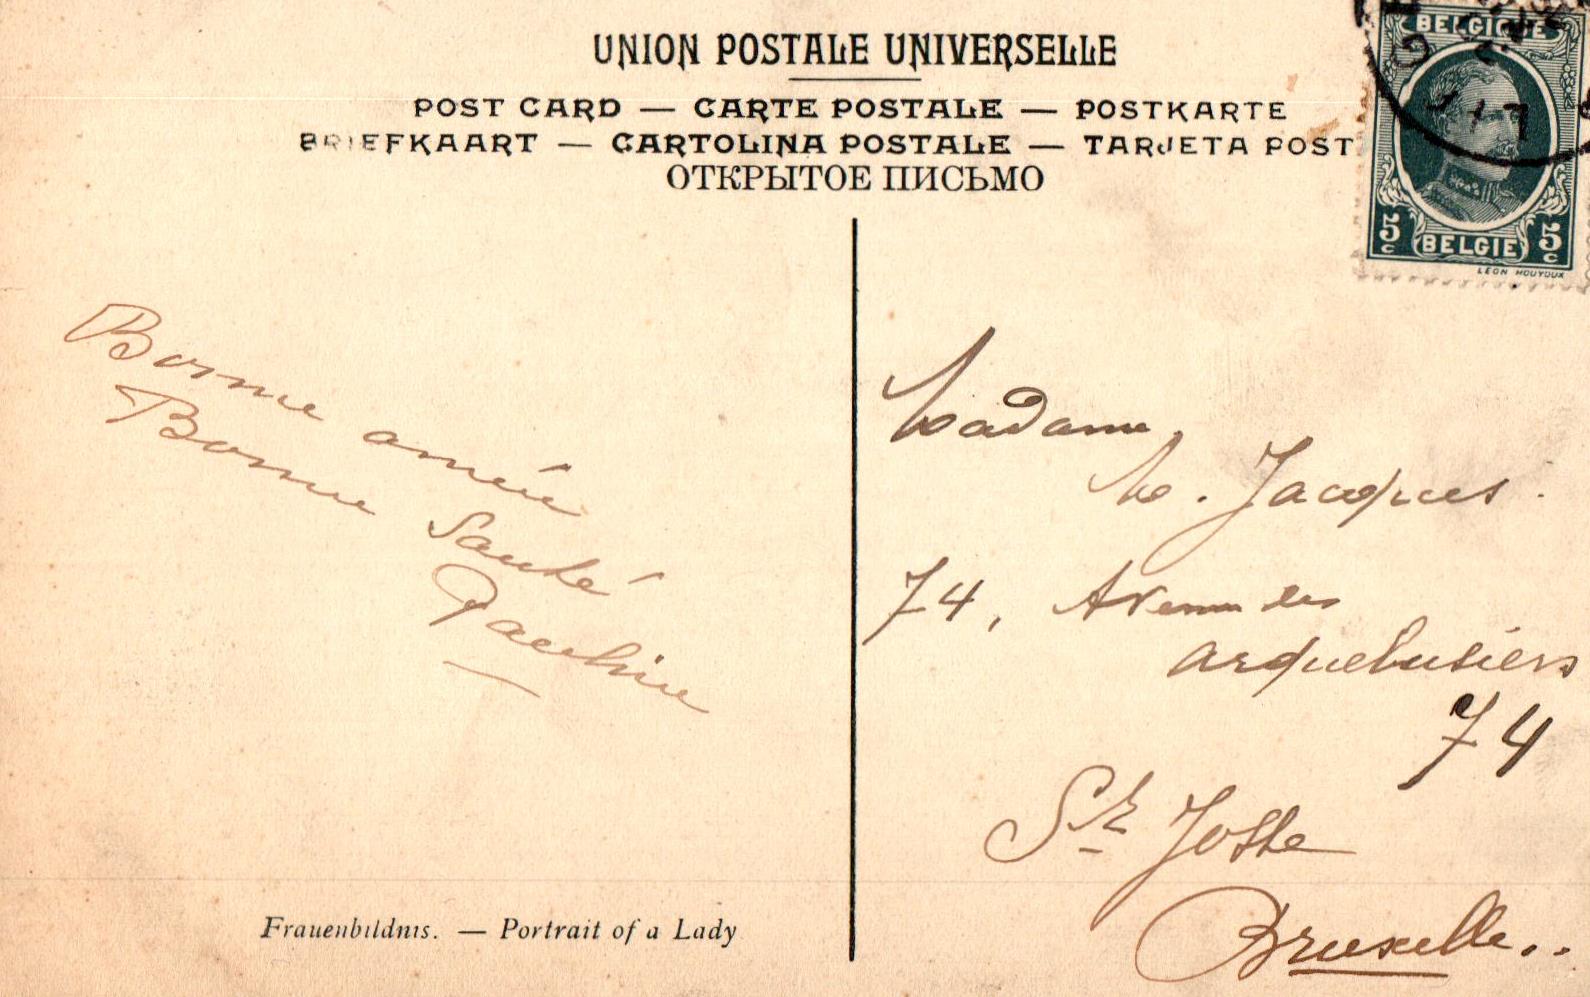 UNION POSTALE UNIVERSELLE
POST CARD — CARTE POSTALE — POSTKARTE
BRIEFKAART — CARTOLINA POSTALE — TARJETA POST
ОТКРЫТОЕ ПИСЬМО
BELGIQUE
5c BELGIE 5c
LEON HOUYOUX
Bonne année
Bonne Santé
Pauline
Madame
M. Jacques.
74, Avenue des
arquebusiers
74
St Josse
Bruxelle..
Frauenbildnis. — Portrait of a Lady